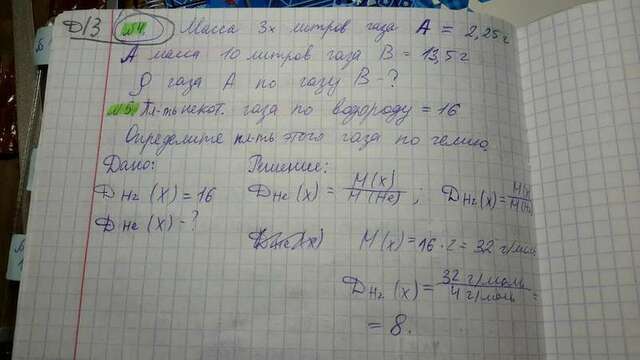 Д/З №4. Масса 3х литров газа А = 2,25г
А масса 10 литров газа В = 13,5г
D газа А по газу В - ?
№5. Пл-ть некот. газа по водороду = 16
Определите пл-ть этого газа по гелию.
Дано: Решение:
D H2 (X) = 16 D He (X) = M(X) / M(He) ; D H2(X) =
D He (X) - ?
M(X) = 16 · 2 = 32 г/моль
D H2 (X) = 32 г/моль / 4 г/моль =
= 8.